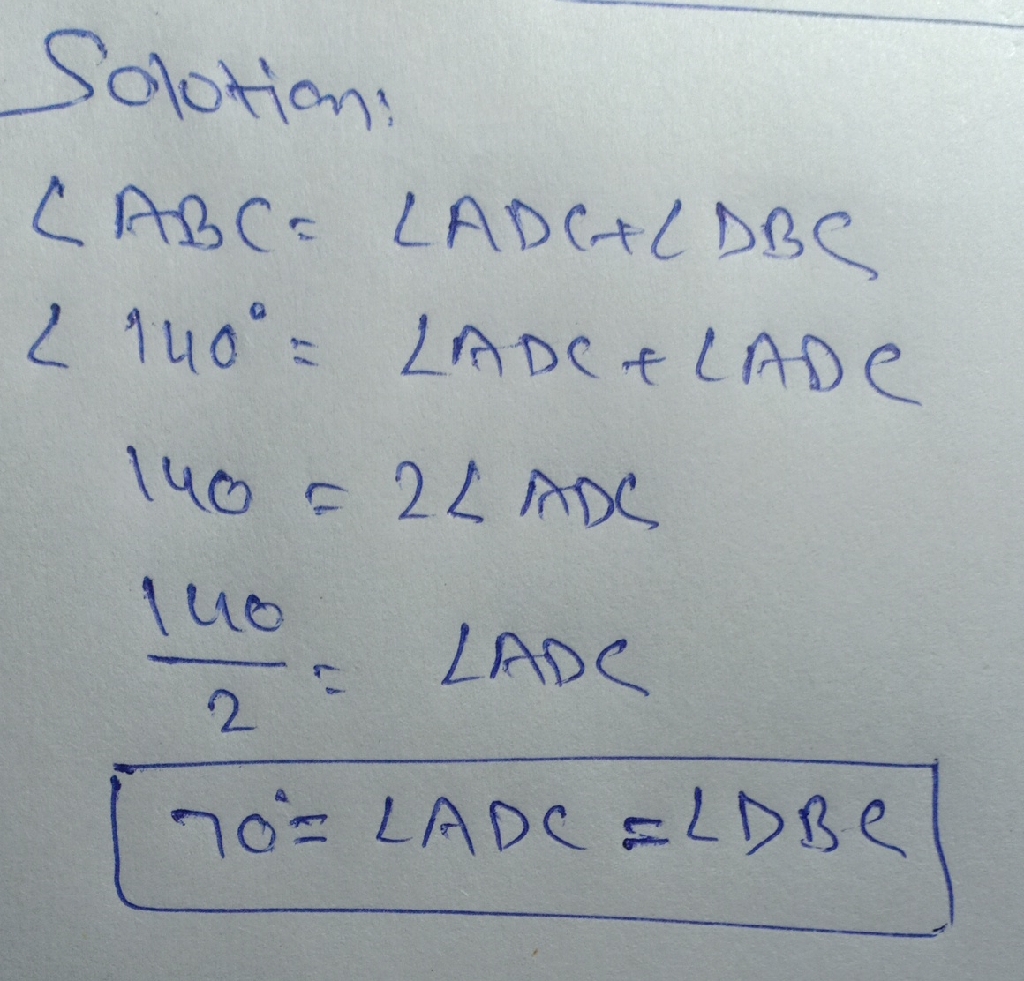 Solotion:
∠ABC = ∠ADC+∠DBC
∠140° = ∠ADC + ∠ADC
140 = 2∠ADC
140
2
= ∠ADC
70° = ∠ADC = ∠DBC